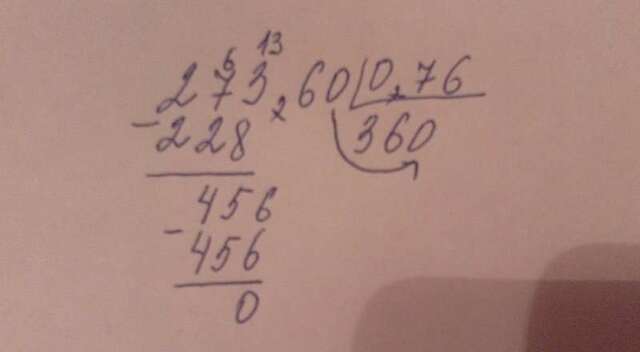 6 13
273,60 0,76
- 228 360
456
- 456
0